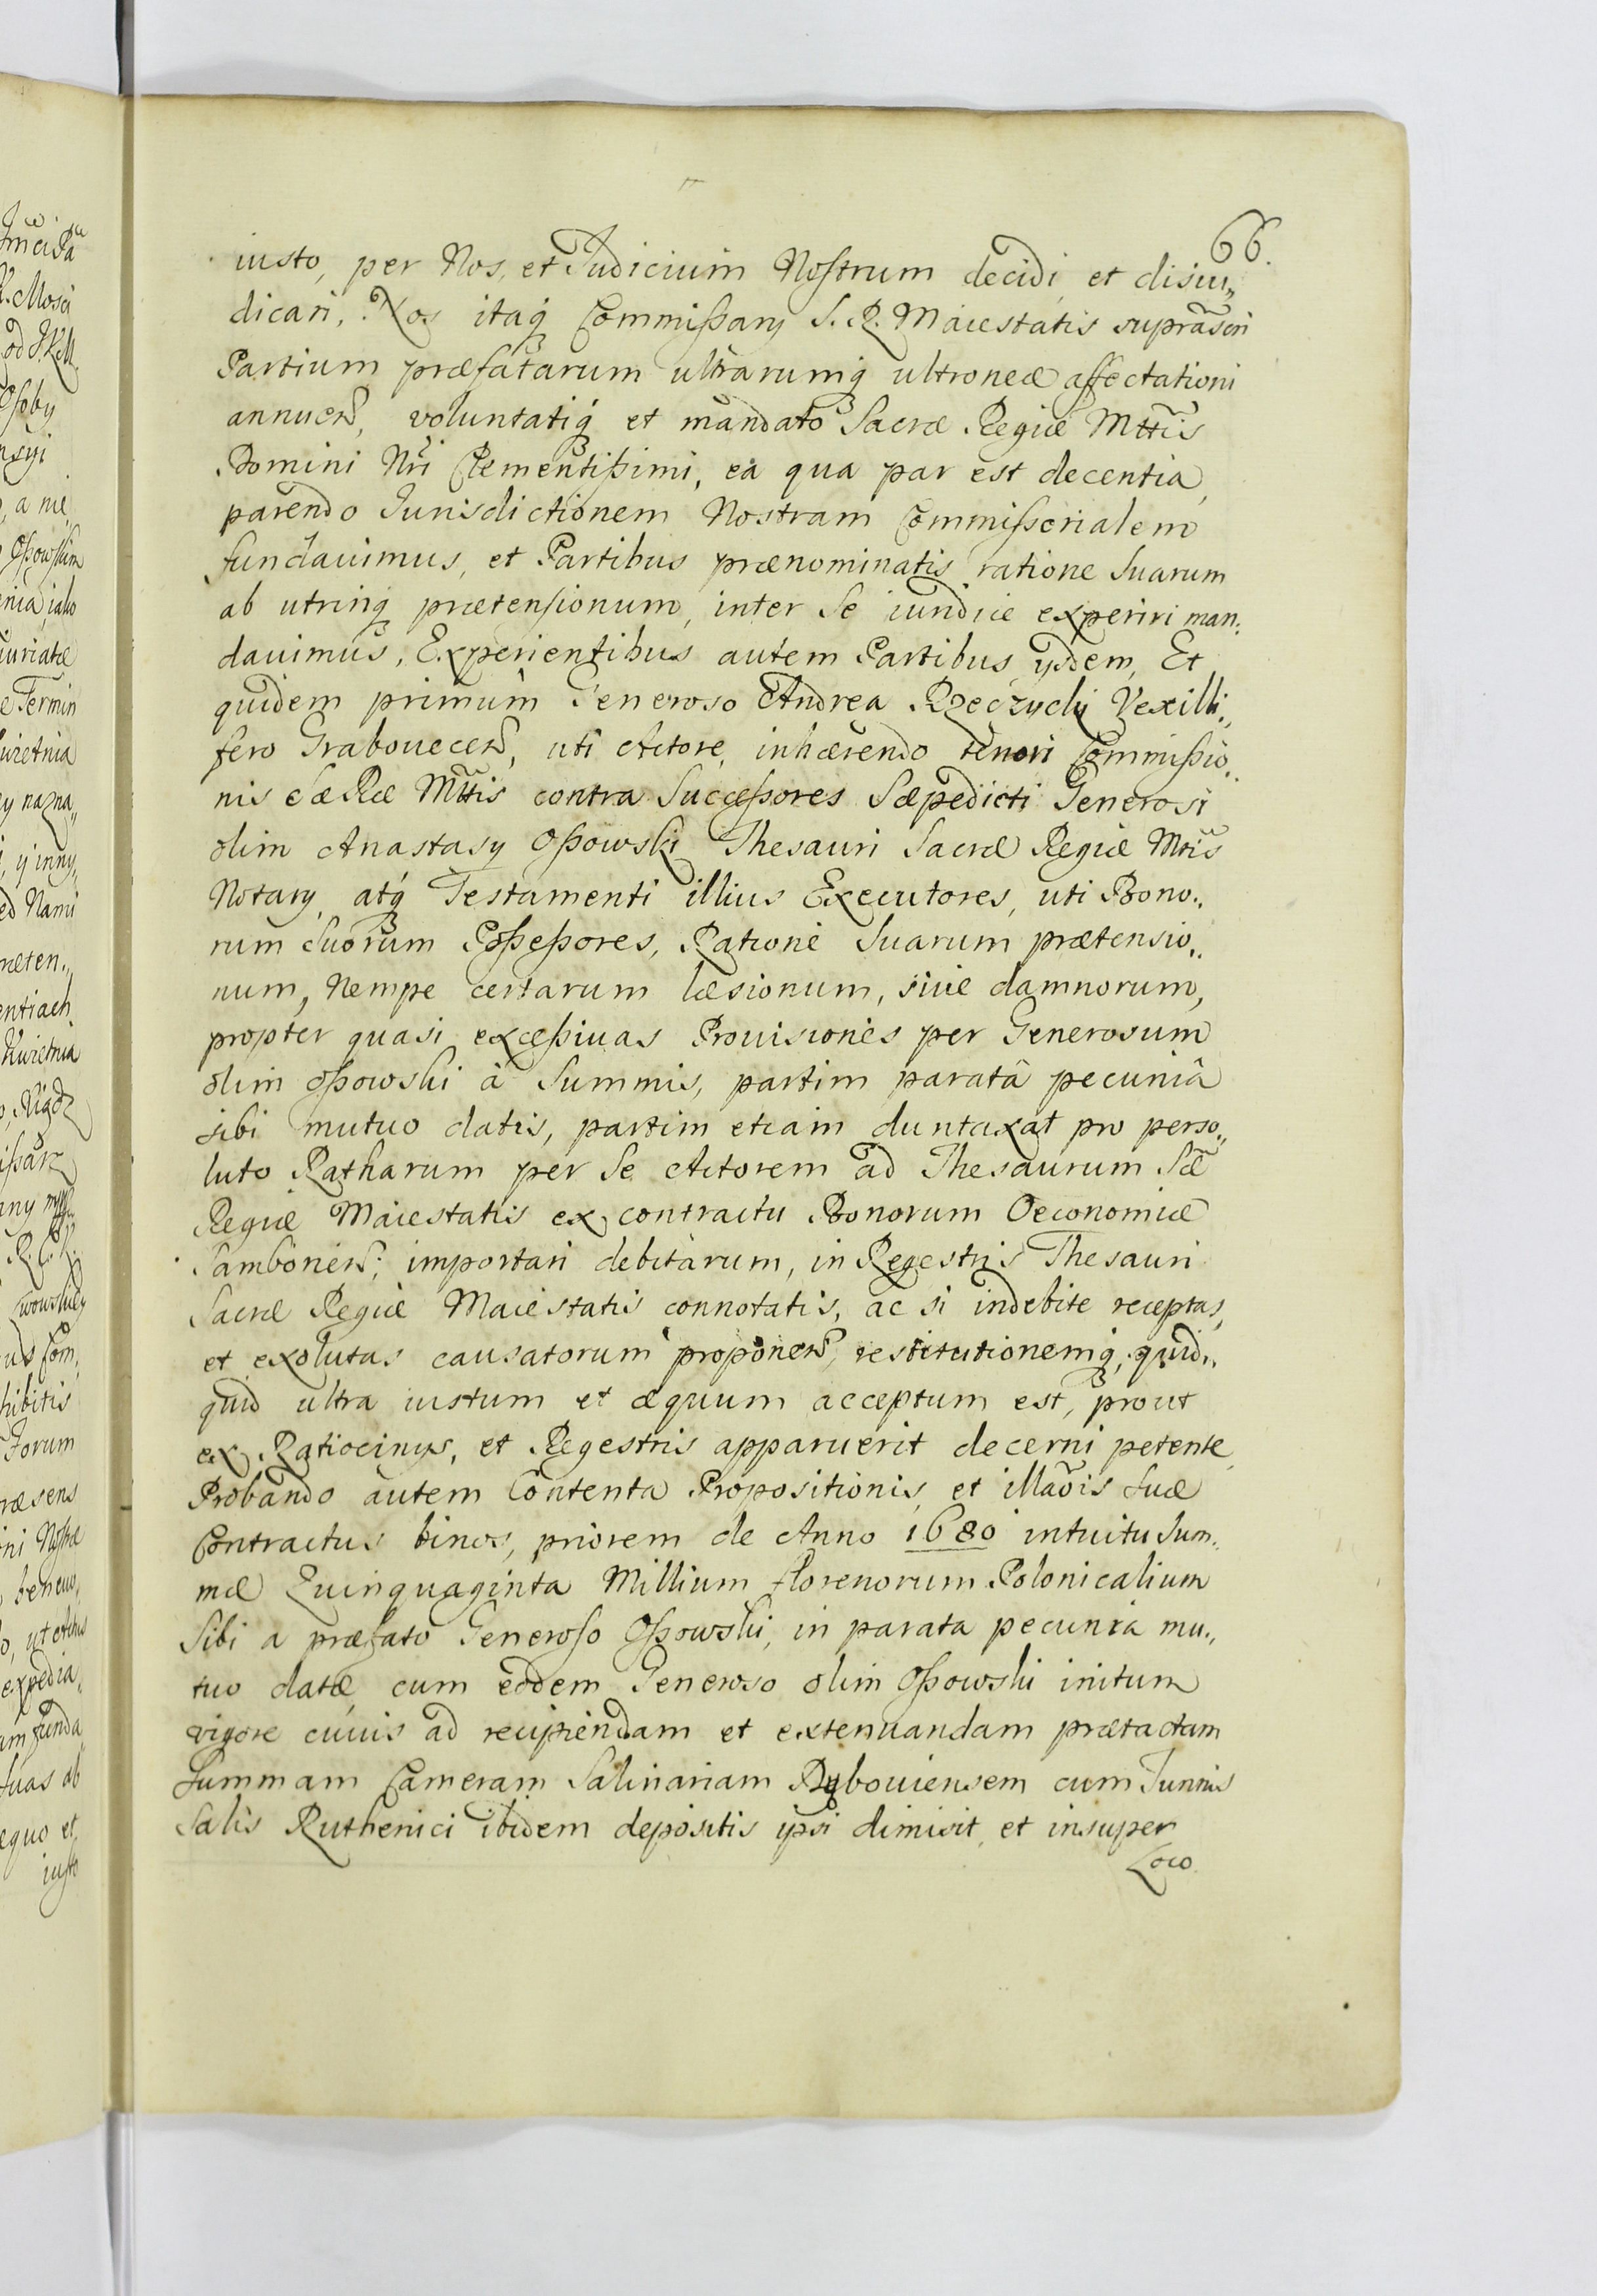 66.
iusto, per Nos, et Judicium Nostrum decidi et disiu„
dicari, Nos itaq́ Commißarÿ S. R. Maiestatis suprascri
Partium præfatarum ultrarumq́ ultroneæ affectationi
annuen̄, voluntatiq́ et mandato Sacræ Regiæ Mttis
Domini Nri Clementißimi, ea qua par est decentia,
parendo Jurisdictionem Nostram Commißorialem
fundauimus, et Partibus prænominatis ratione Suarum
ab utrinq́ prætensionum, inter Se iuridice experiri man„
dauimus, Experientibus autem Partibus ÿsdem, Et
quidem primum Generoso Andrea Rzeczycki Vexilli„
fero Grabouecen̄, uti Actore, inhærendo tenori Commißio„
nis Sæ Ræ Mttis contra Succeßores Sæpedicti Generosi
olim Anastasÿ Oßowski Thesauri Sacræ Regiæ Mtis
Notarÿ, atq́ Testamenti illius Executores, uti Bono„
rum Suorum Poßeßores, Ratione Suarum prætensio„
num, Nempe certarum læsionum, siue damnorum,
propter quasi exceßiuas Prouisiones per Generosum
olim Oßowski à Summis, partim paratâ pecuniâ
sibi mutuo datis, partim etiam duntaxat pro perso„
luto Ratharum per Se Actorem ad Thesaurum Sæ
Regiæ Maiestatis ex contractu Bonorum Oeconomiæ
Samborien̄; importari debitarum, in Regestris Thesauri
Sacræ Regiæ Maiestatis connotatis, ac si indebite receptas,
et exolutas causatorum proponen̄, restitutionemq́, quid„
quid ultra iustum et æquum acceptum est, prout
ex Ratiocinÿs, et Regestris apparuerit decerni petente
Probando autem Contenta Propositionis, et illaõis Suæ
Contractus binos, priorem de Anno 1680 intuitu Sum„
mæ Quinquaginta Millium florenorum Polonicalium
Sibi a præfato Generoso Oßowski, in parata pecunia mu„
tuo datæ, cum eodem Generoso olim Oßowski initum
vigore cuius ad recipiendam et extenuandam prætactam
Summam Cameram Salinariam Rybouiensem cum Tunnis
Salis Ruthenici ibidem depositis ipsi dimisit, et insuper
Loco